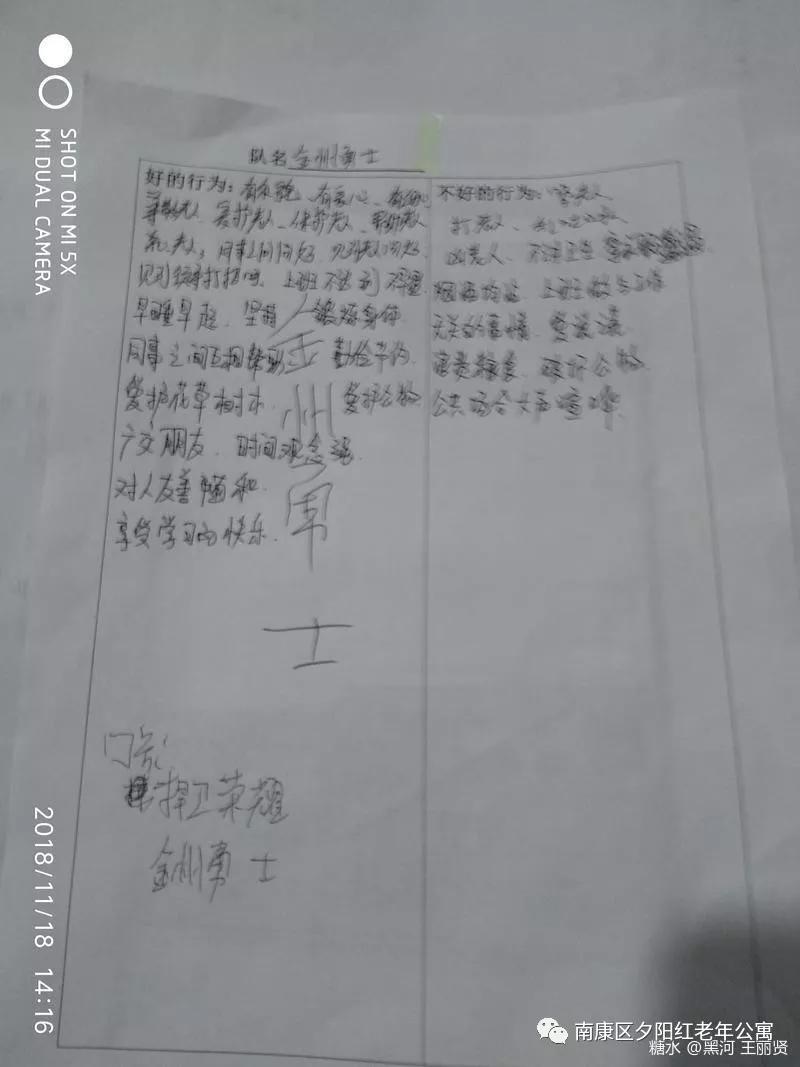 SHOT ON MI 5X
MI DUAL CAMERA
队名 金州勇士
好的行为：有礼貌、有爱心、有
尊敬老人、爱护老人、保护老人、
老人，同事之间问好，见到老人问好
见到 打招呼，上班不迟到 不早退
早睡早起，坚持 锻炼身体
同事之间互相帮助 勤俭节约
爱护花草树木 爱护公物
广交朋友，时间观念强
对人友善 和
享受学习的快乐
金
州
勇
士
不好的行为：骂老人
打老人、
凶老人、不讲卫生
上班做与工作
无关的事情、爱说谎
浪费粮食、破坏公物
公共场合大声喧哗
捍卫荣耀
金州勇士
2018/11/18 14:16
南康区夕阳红老年公寓
糖水 @黑河 王丽贤